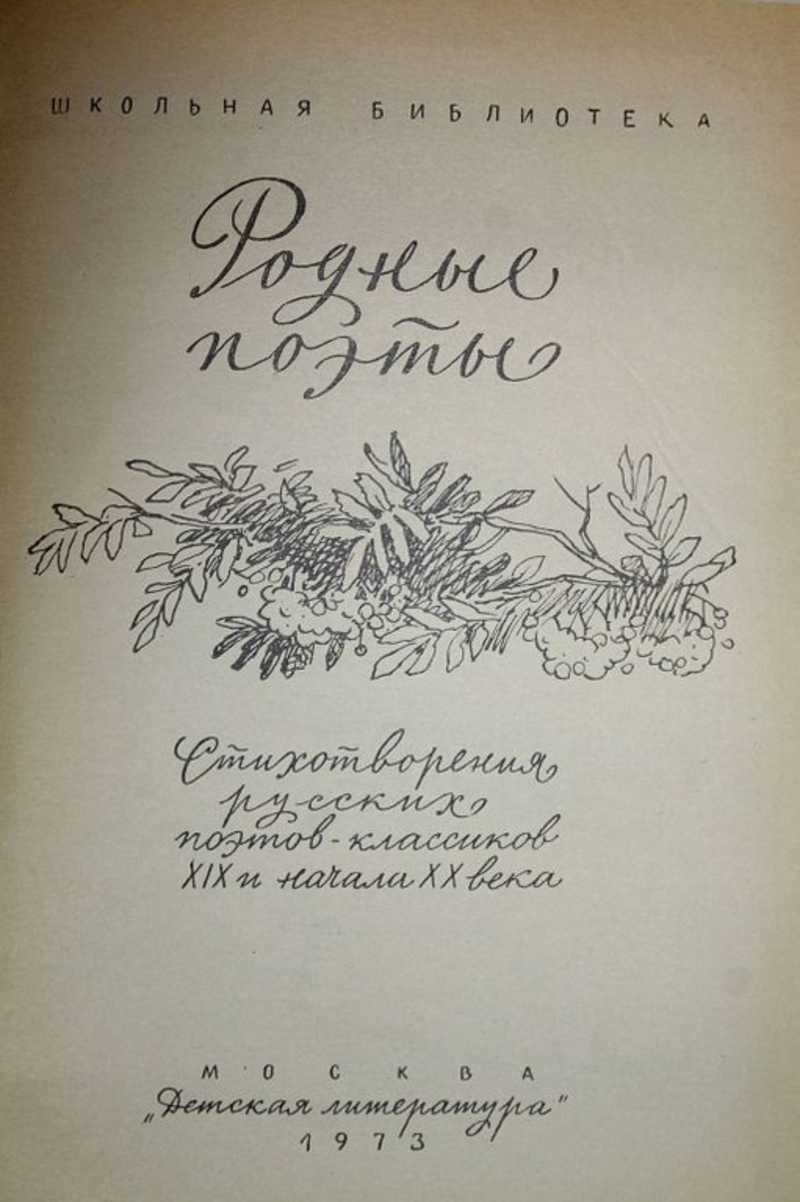 ШКОЛЬНАЯ БИБЛИОТЕКА
Родные
поэты
Стихотворения
русских
поэтов-классиков
XIX и начала XX века
МОСКВА
„Детская литература"
1973